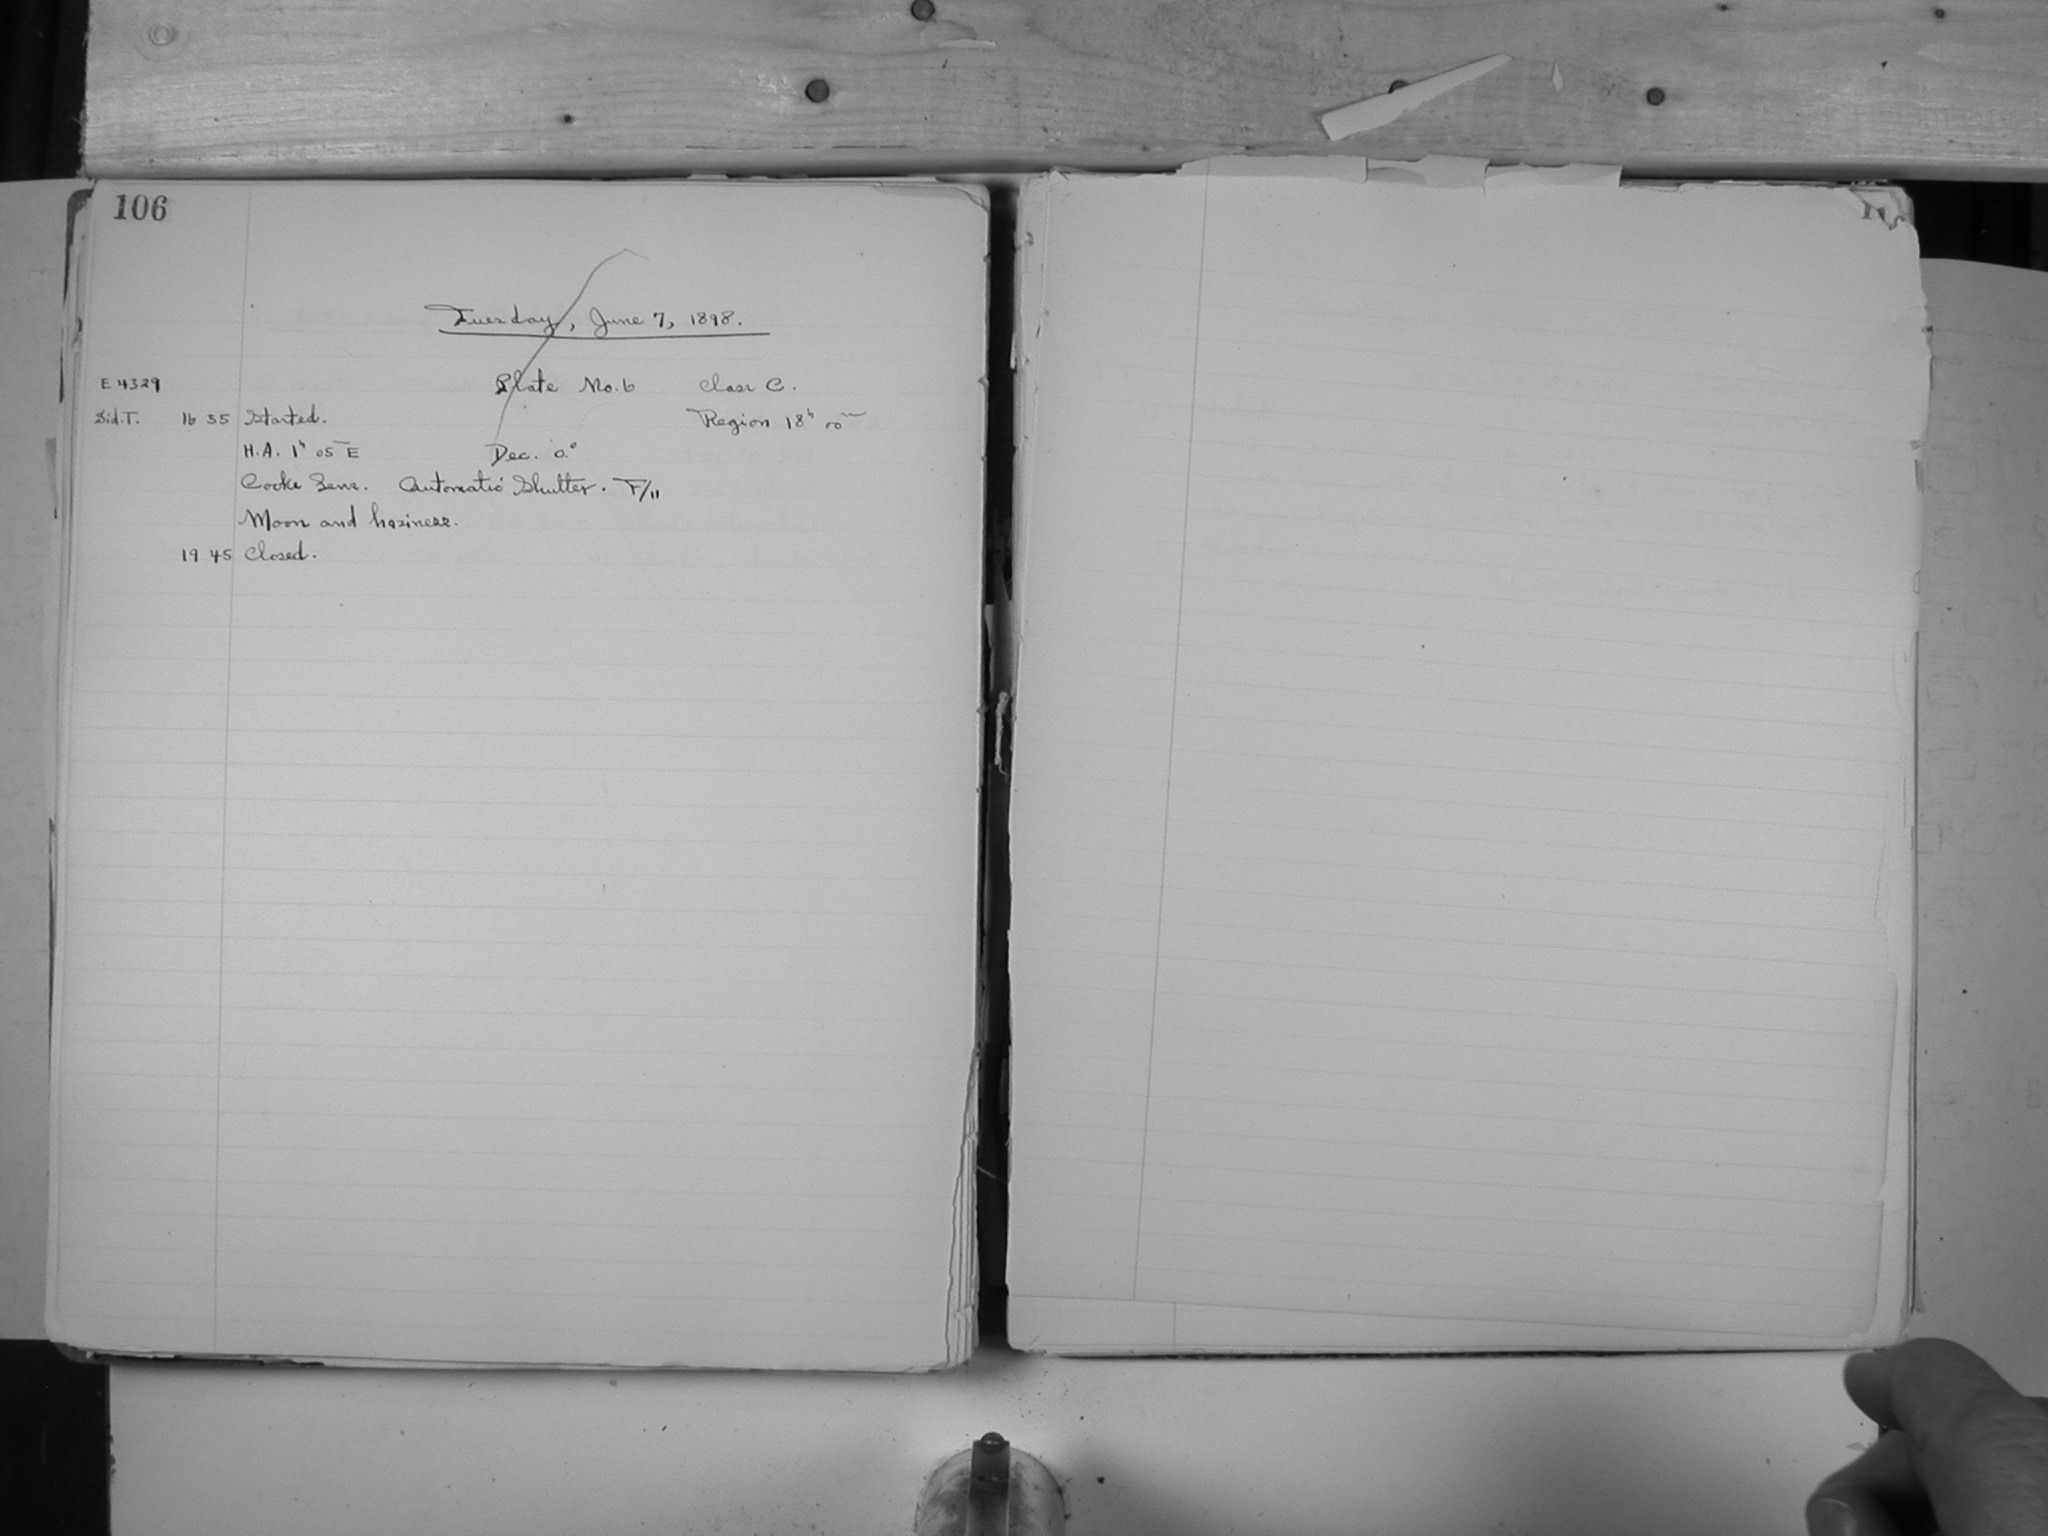 106
Tuesday, June 7, 1898.
E 4329 Plate No. 6 Class C.
Sid. T. 16 55 Started. Region 18ʰ 00ᵐ
H.A. 1ʰ 05ᵐ E Dec. 0.°
Cooke Lens. Automatic Shutter. F/11
Moon and haziness.
19 45 Closed.